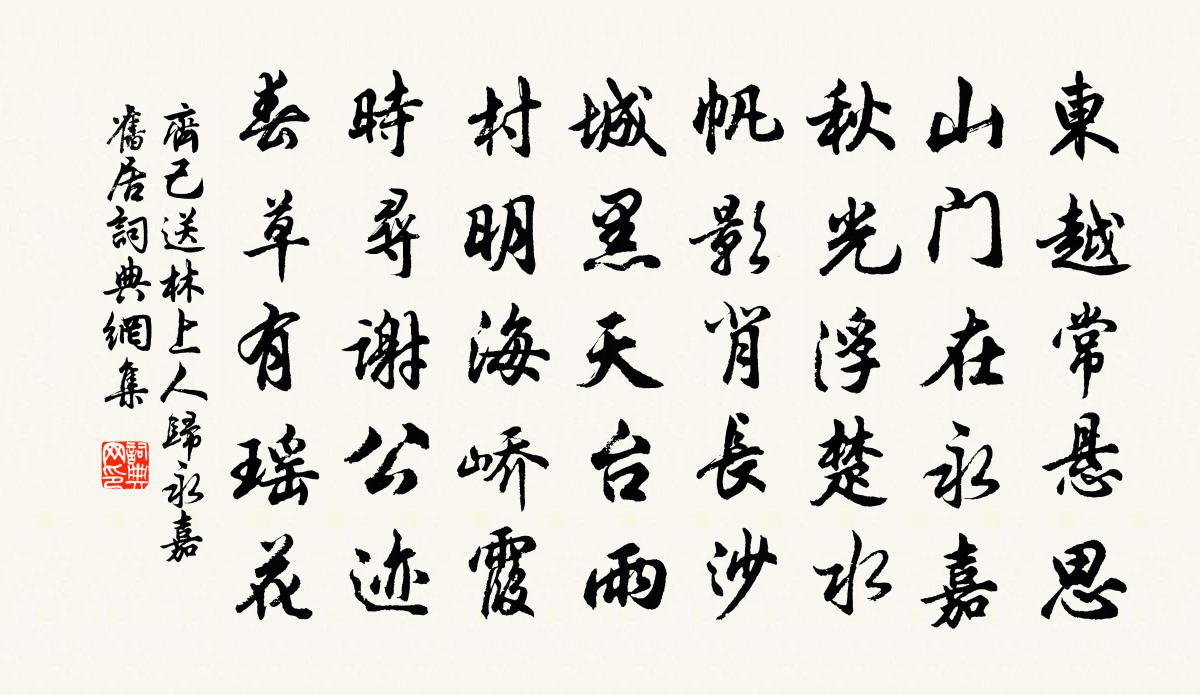 東越常悬思
山门在永嘉
秋光浮楚水
帆影背长沙
城黑天台雨
村明海峤霞
時尋谢公迹
春草有瑶花
齊己送林上人歸永嘉
舊居詞典網集
詞典网印